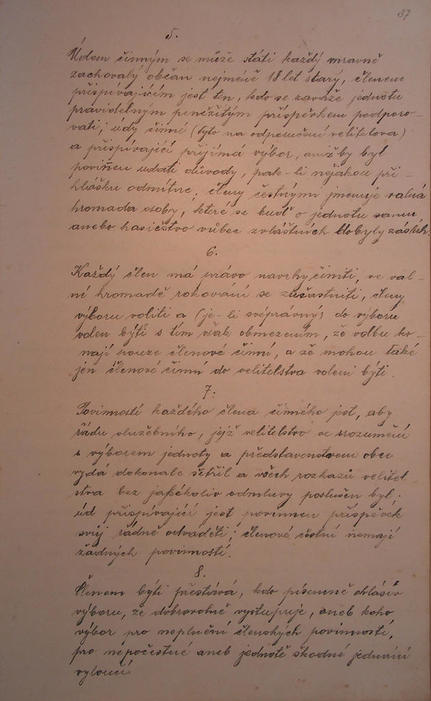 37
5.
Údem činným se může státi každý mravně
zachovalý občan nejméně 18 let starý, členem
přispívajícím jest ten, kdo se zaváže jednotu
pravidelným peněžitým příspěvkem podporo-
vati; údy činné (tyto na odporučení velitelstva)
a přispívající přijímá výbor, aniž by byl
povinen udati důvody, pak-li nějakou při-
hlášku odmítne; členy čestnými jmenuje valná
hromada osoby, které se buď o jednotu samu
aneb o hasičstvo vůbec zvláštních dobyly zásluh.
6.
Každý člen má právo návrhy činiti, ve val-
ní hromadě rokování se zúčastniti, členy
výboru voliti a (je-li svéprávný) do výboru
volen býti s tím však obmezením, že volbu ko-
nají pouze členové činní, a že mohou také
jen členové činní do velitelstva voleni býti.
7.
Povinností každého člena činného jest, aby
řádu služebního, jejž velitelstvo ve srozumění
s výborem jednoty a představenstvem obce
vydá dokonale šetřil a všech rozkazů velitel
stva bez jakékoliv odmluvy poslušen byl;
úd přispívající jest povinen příspěvek
svůj řádně odváděti; členové čestní nemají
žádných povinností.
8.
Členem býti přestává, kdo písemně ohlásiv
výboru, že dobrovolně vystupuje, aneb koho
výbor pro neplnění členských povinností,
pro nepočestné aneb jednotě škodné jednání
vyloučí